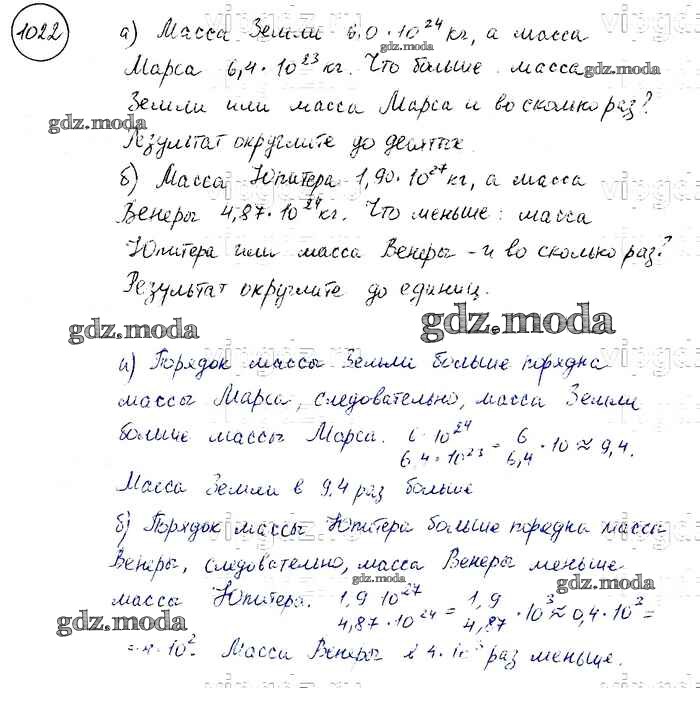 1022
а) Масса Земли 6,0 · 10²⁴ кг, а масса
Марса 6,4 · 10²³ кг. Что больше масса
Земли или масса Марса и во сколько раз?
Результат округлите до десятых.
б) Масса Юпитера 1,90 · 10²⁷ кг, а масса
Венеры 4,87 · 10²⁴ кг. Что меньше: масса
Юпитера или масса Венеры - и во сколько раз?
Результат округлите до единиц.
gdz.moda
а) Порядок массы Земли больше порядка
массы Марса, следовательно, масса Земли
больше массы Марса. 6 · 10²⁴ / 6,4 · 10²³ = 6 / 6,4 · 10 ≈ 9,4.
Масса Земли в 9,4 раз больше
б) Порядок массы Юпитера больше порядка массы
Венеры, следовательно, масса Венеры меньше
массы Юпитера. 1,9 10²⁷ / 4,87 · 10²⁴ = 1,9 / 4,87 · 10³ ≈ 0,4 · 10³ =
= 4 · 10². Масса Венеры в 4 · 10² раз меньше.